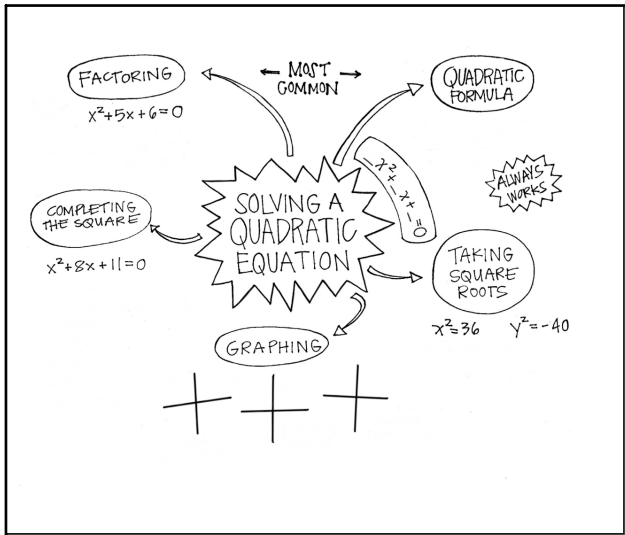 FACTORING
x²+5x+6=0
← MOST →
COMMON
QUADRATIC
FORMULA
_x²+_x+_=0
ALWAYS
WORKS
COMPLETING
THE SQUARE
x²+8x+11=0
SOLVING A
QUADRATIC
EQUATION
TAKING
SQUARE
ROOTS
x²=36 y²=-40
GRAPHING